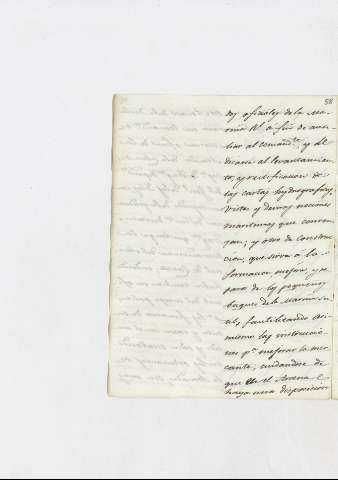 58
dos oficiales de la Ma-
rina Rl. á fin de auxi-
liar al comandte. y de-
dicarse al levantamien-
to, y rectificacion de
las cartas hydrograficas,
vistas y demas nociones
maritimas que conven-
gan; y otro de construc-
cion, que sirva á la
formacion, mejora, y re-
paro de los pequeños
buques de la Marina Re-
al, facilitando asi-
mismo las instruccio-
nes pa. mejorar la mer-
cante; cuidandose de
que en el Arsenal
haya una disposicion